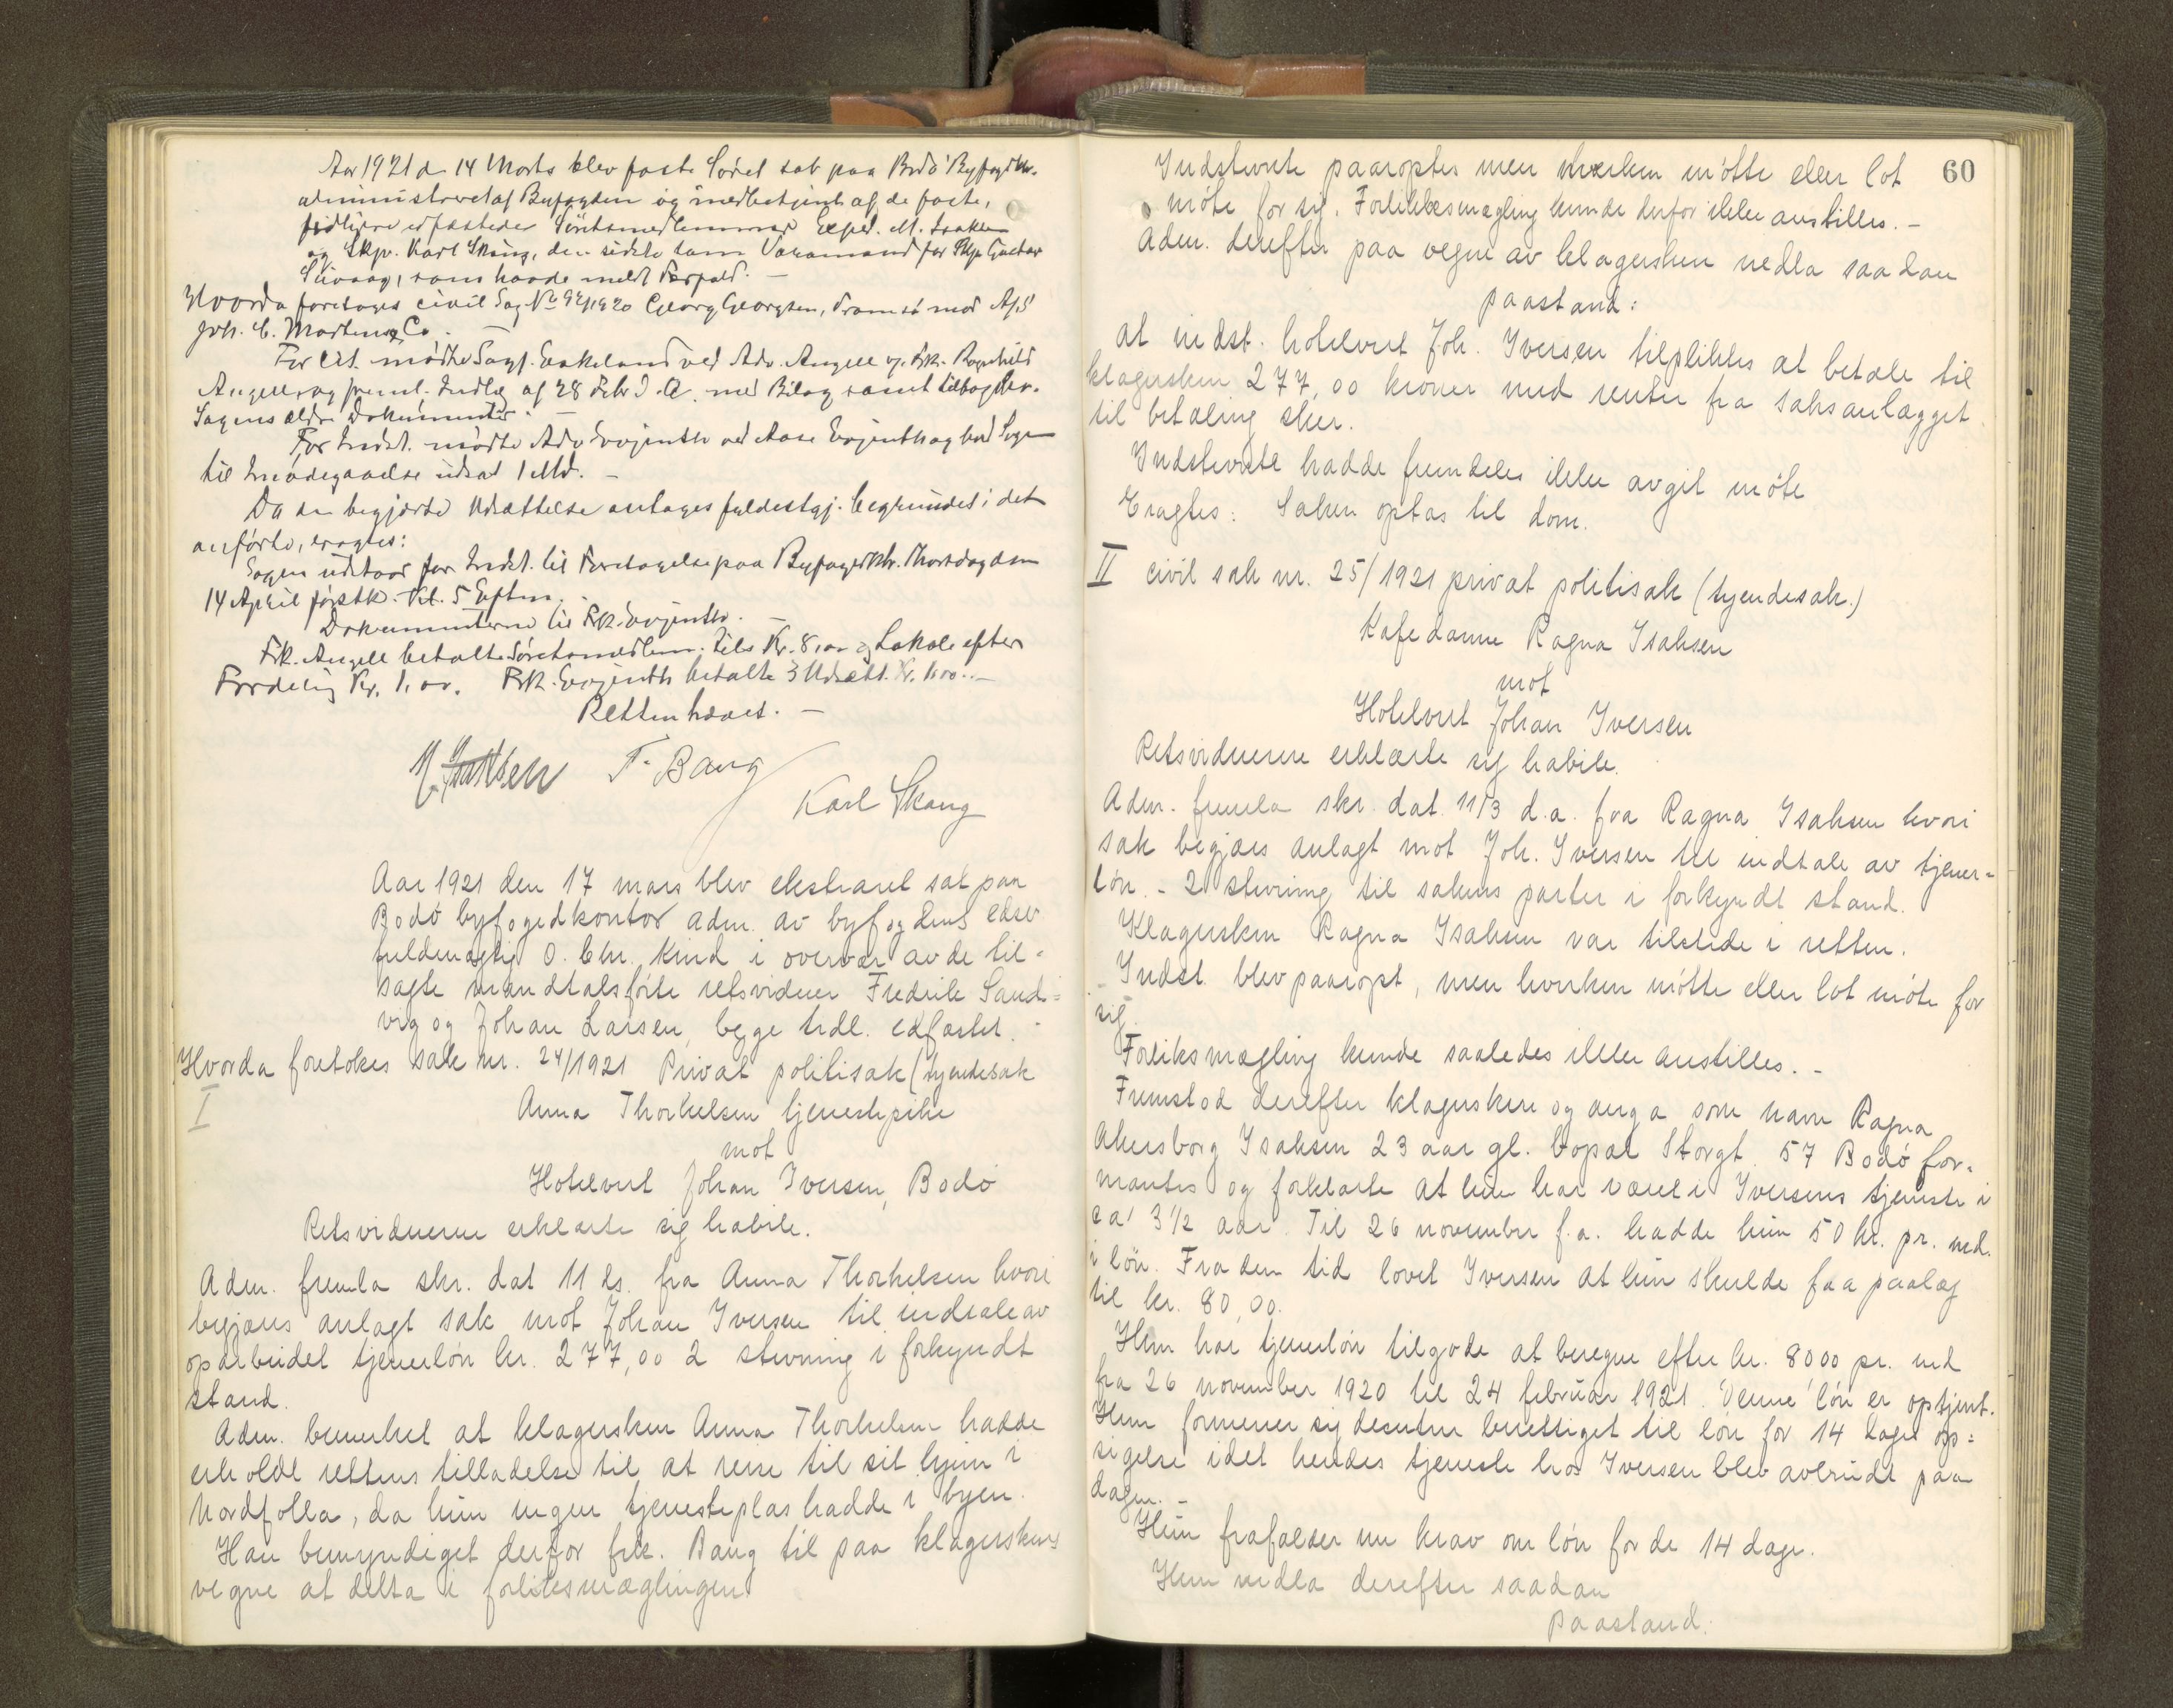 Aar 1921 d. 14 Marts blev faste Søret sat paa Bodø Byfogdktr.
administreret af Byfogden og medbetjent af de faste,
tidligere edfæstede Søretsmedlemmer Exped. M. Isaksen
og Skp. Karl Skaug, den sidste som Varamand for Skp. Gustav
som havde meldt Forfald. —
Hvorda foretoges civil Sag No 92/1920 Georg Georgsen, Tromsø mod A/S
Joh. C. Martens & Co. —
For Cit. mødte Sagf. Eskeland ved Adv. Angell v. Frk. Ragnhild
Angell og freml. Indlæg af 28 Febr d. A. med Bilag samt tilbagelev.
Sagens ældre Dokumenter. —
For Indst. mødte Adv Evjenth ved Aase Evjenth og bad Sagen
til Imødegaaelse udsat 1 Md. —
Da den begjærte Udsættelse antages fyldestgj. begrundet i det
anførte, eragtes:
Sagen udstaar for Indst. til Foretagelse paa Byfogedktr. Thorsdag den
14 April førstk. Kl. 5 Eftm.
Dokumenterne til Frk. Evjenth. —
Frk. Angell betalte Søretsmedlem. tils Kr. 8,00 og Lokale efter
Fordeling Kr. 1,00. Frk. Evjenth betalte 3 Udsætt. Kr. 1,00. —
Retten hævet. —
M. Isaksen F. Bang
Karl Skaug
Aar 1921 den 17 mars blev ekstraret sat paa
Bodø byfogedkontor adm. av byfogdens edsv.
fuldmægtig O. Chr. Kind i overvær av de til-
sagte mandtalsførte retsvidner Fredrik Sand-
vig og Johan Larsen, begge tidl. edfæstet. -
Hvorda foretokes sak nr. 24/1921 Privat politisak (tyendesak
I
Anna Thorkelsen tjenestepike
mot
Hotelvert Johan Iversen, Bodø
Retsvidnerne erklærte sig habile.
Adm. fremla skr. dat 11 ds. fra Anna Thorkelsen hvori
begjæres anlagt sak mot Johan Iversen til indtale av
oparbeidet tjenerløn kr. 277,00 2 stevning i forkyndt
stand.
Adm. bemerket at klagersken Anna Thorkelsen hadde
erholdt rettens tilladelse til at reise til sit hjem i
Nordfolla, da hun ingen tjenesteplas hadde i byen.
Han bemyndiget derfor frk. Bang til paa klagerskens
vegne at delta i forliksmæglingen
60
Indstevnte paaroptes men hverken møtte eller lot
møte for sig. Forliksmægling kunde derfor ikke anstilles. -
Adm. derefter paa vegne av klagersken nedla saadan
paastand:
at indst. hotelvert Joh. Iversen tilpliktes at betale til
klagersken 277,00 kroner med renter fra saksanlægget
til betaling sker.
Indstevnte hadde fremdeles ikke avgit møte
Eragtes: Saken optas til dom.
II civil sak nr. 25/1921 privat politisak (tyendesak.)
Kafedame Ragna Isaksen
mot
Hotelvert Johan Iversen
Retsvidnerne erklærte sig habile.
Adm. fremla skr. dat. 11/3 d.a. fra Ragna Isaksen hvori
sak begjæres anlagt mot Joh. Iversen til indtale av tjener-
løn. - 2 stevning til sakens parter i forkyndt stand.
Klagersken Ragna Isaksen var tilstede i retten.
Indst. blev paaropt, men hverken møtte eller lot møte for
sig.
Forliksmægling kunde saaledes ikke anstilles. -
Fremstod derefter klagersken og anga som navn Ragna
Akersborg Isaksen 23 aar gl. bopæl Storgt. 57 Bodø for-
mantes og forklarte at hun har været i Iversens tjeneste i
ca 3 1/2 aar. Til 26 november f.a. hadde hun 50 kr. pr. md.
i løn. Fra den tid lovet Iversen at hun skulde faa paalæg
til kr. 80,00.
Hun har tjenerløn tilgode at beregne efter kr. 80 00 pr. md
fra 26 november 1920 til 24 februar 1921. Denne løn er optjent.
Hun formener sig desuten berettiget til løn for 14 dages op-
sigelse idet hendes tjeneste hos Iversen blev avbrudt paa
dagen. -
Hun frafalder nu krav om løn for de 14 dage.
Hun nedla derefter saadan
paastand: